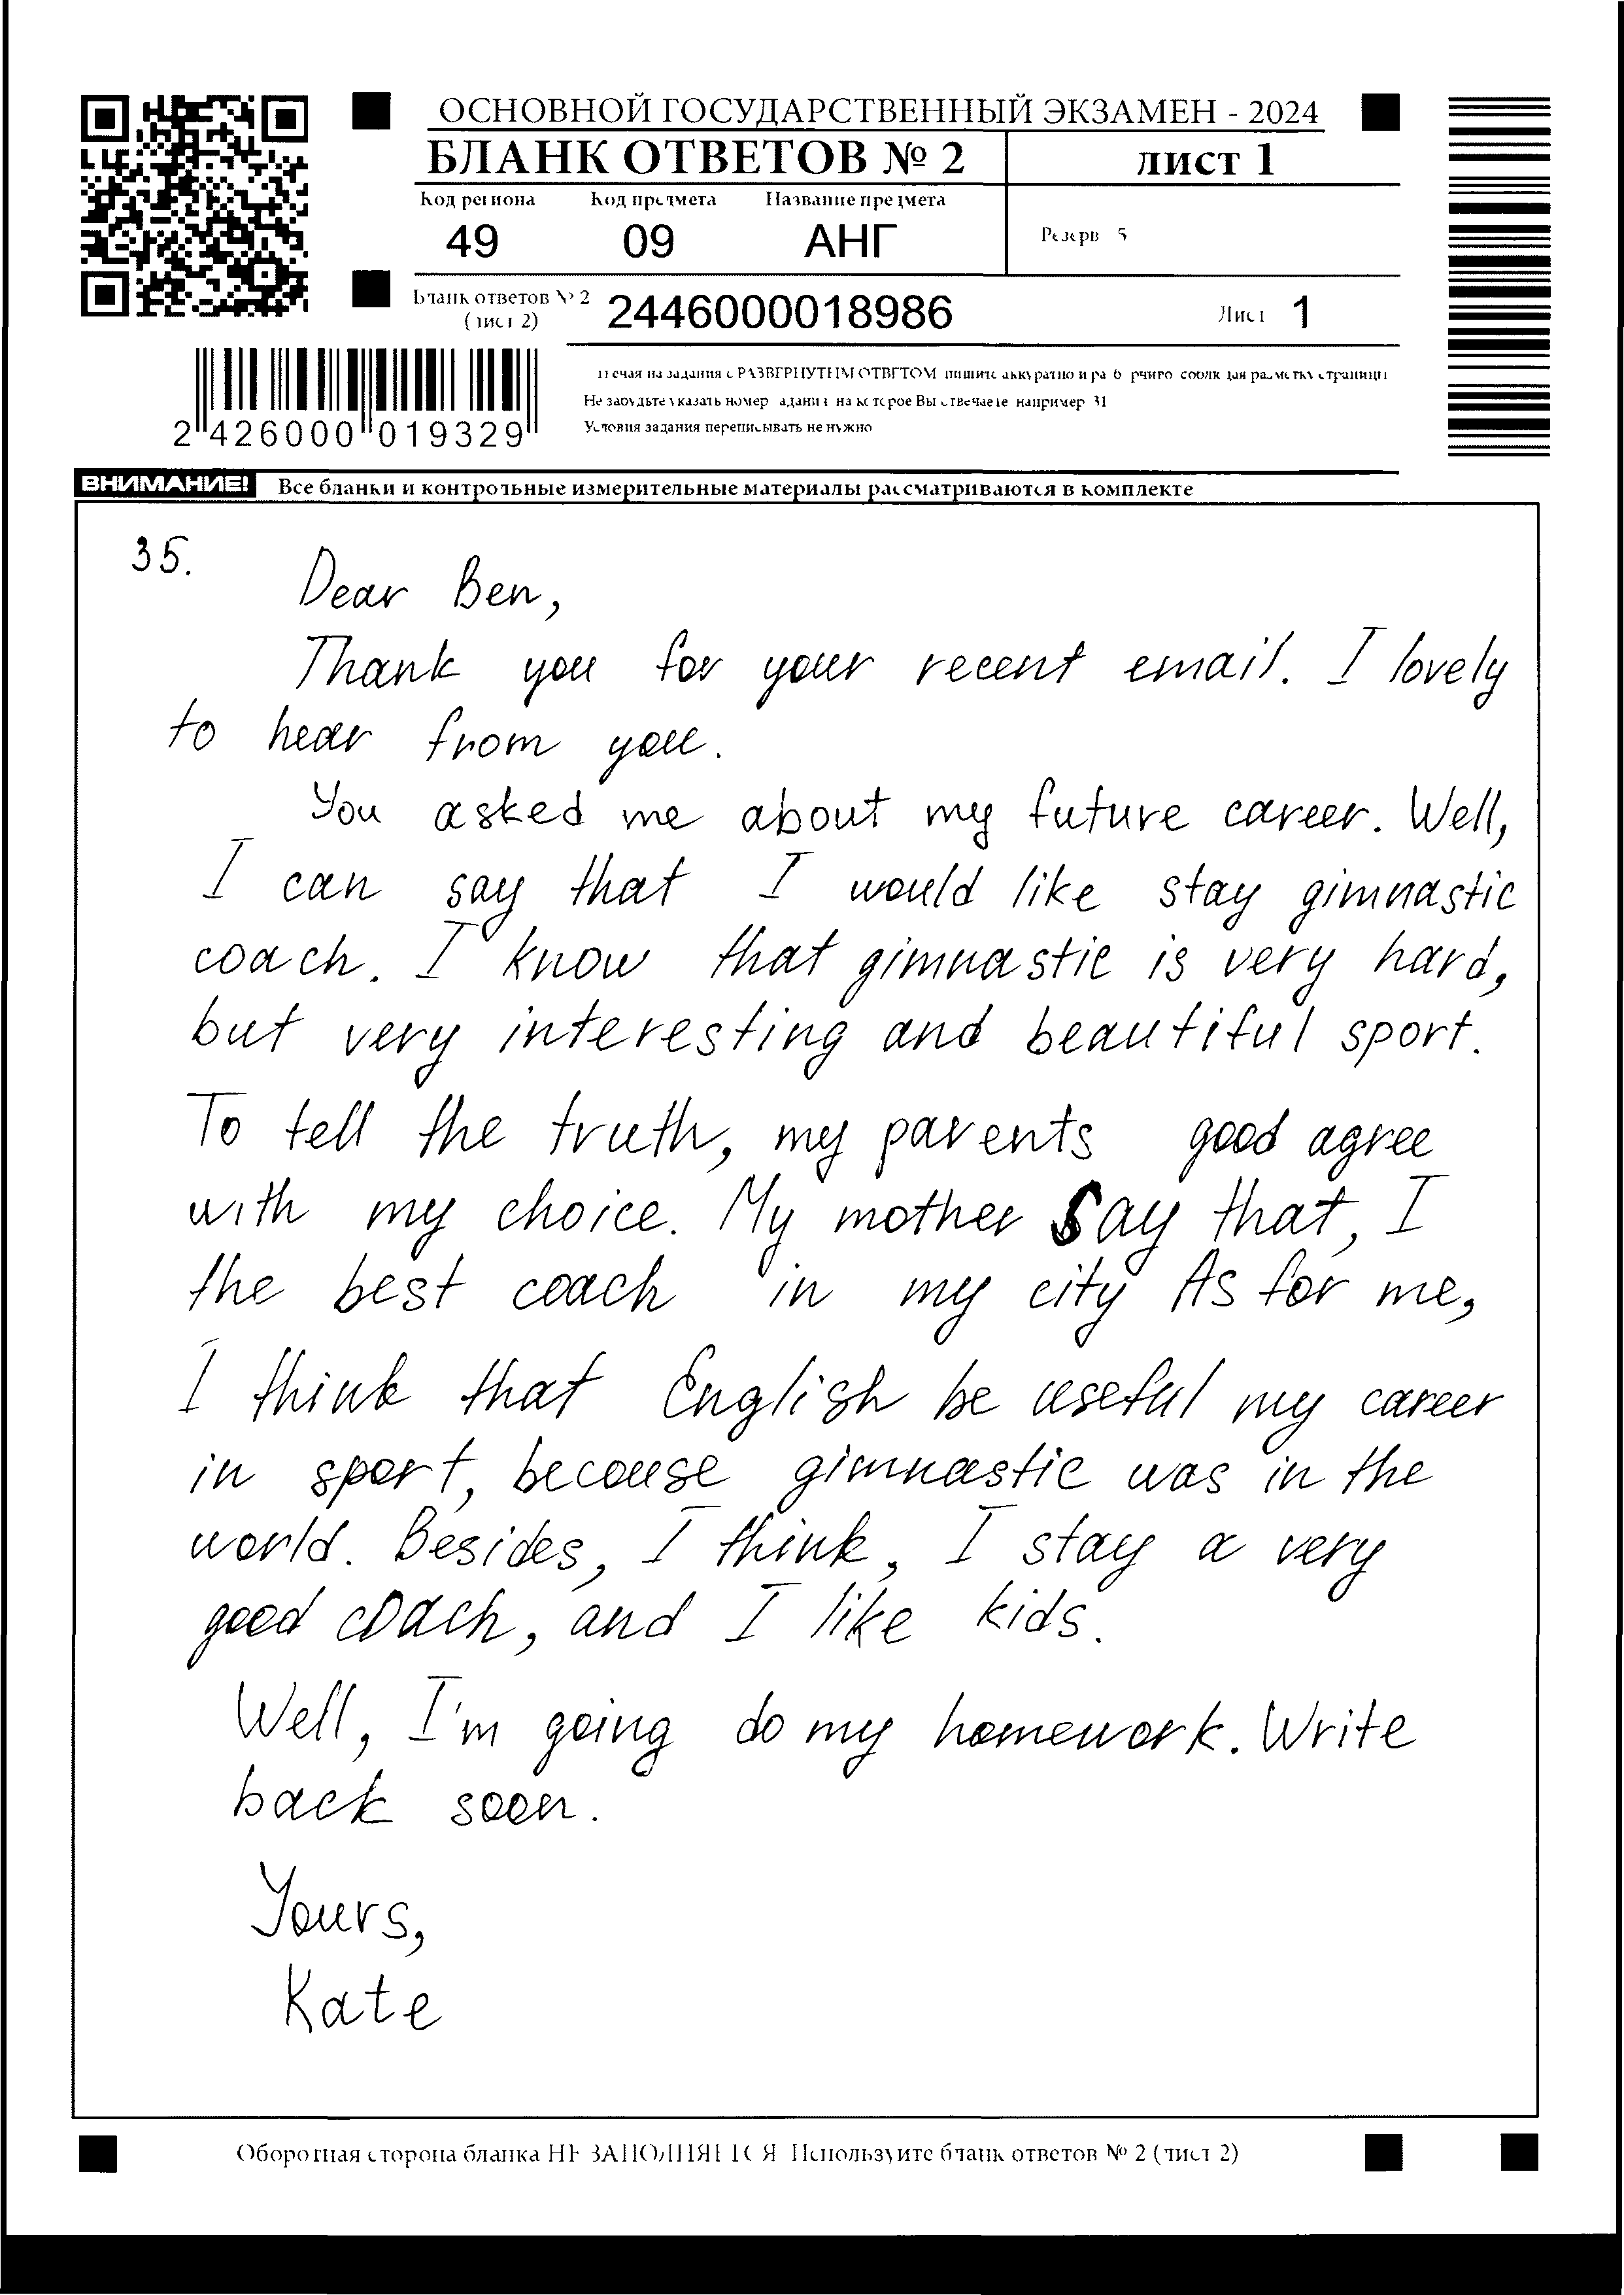 ОСНОВНОЙ ГОСУДАРСТВЕННЫЙ ЭКЗАМЕН - 2024
БЛАНК ОТВЕТОВ № 2
лист 1
Код региона Код предмета Название предмета
49 09 АНГ
Резерв 5
Бланк ответов № 2
(лист 2)
2446000018986
Лист 1
2 426000 019329
Отвечая на задания с РАЗВЕРНУТЫМ ОТВЕТОМ пишите аккуратно и разборчиво соблюдая разметку страницы
Не забудьте указать номер задания на которое Вы отвечаете например 31
Условия задания переписывать не нужно
ВНИМАНИЕ! Все бланки и контрольные измерительные материалы рассматриваются в комплекте
35.
Dear Ben,
Thank you for your recent email. I lovely
to hear from you.
You asked me about my future career. Well,
I can say that I would like stay gimnastic
coach. I know that gimnastic is very hard,
but very interesting and beautiful sport.
To tell the truth, my parents good agree
with my choice. My mother say that, I
the best coach in my city As for me,
I think that English be useful my career
in sport, becouse gimnastic was in the
world. Besides, I think, I stay a very
good coach, and I like kids.
Well, I'm going do my homework. Write
back soon.
Yours,
Kate
Оборотная сторона бланка НЕ ЗАПОЛНЯЕТСЯ Используйте бланк ответов № 2 (лист 2)